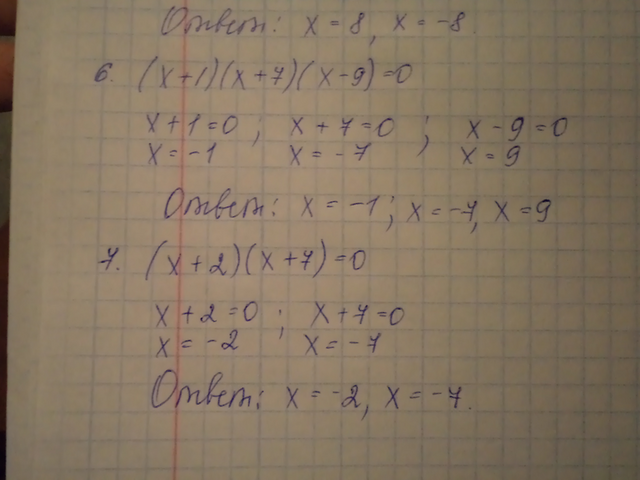 Ответ: x = 8, x = -8.
6. (x+1)(x+7)(x-9)=0
x+1=0; x+7=0; x-9=0
x=-1 x=-7 x=9
Ответ: x = -1; x=-7, x=9
7. (x+2)(x+7)=0
x+2=0; x+7=0
x=-2 x=-7
Ответ: x=-2, x=-7.